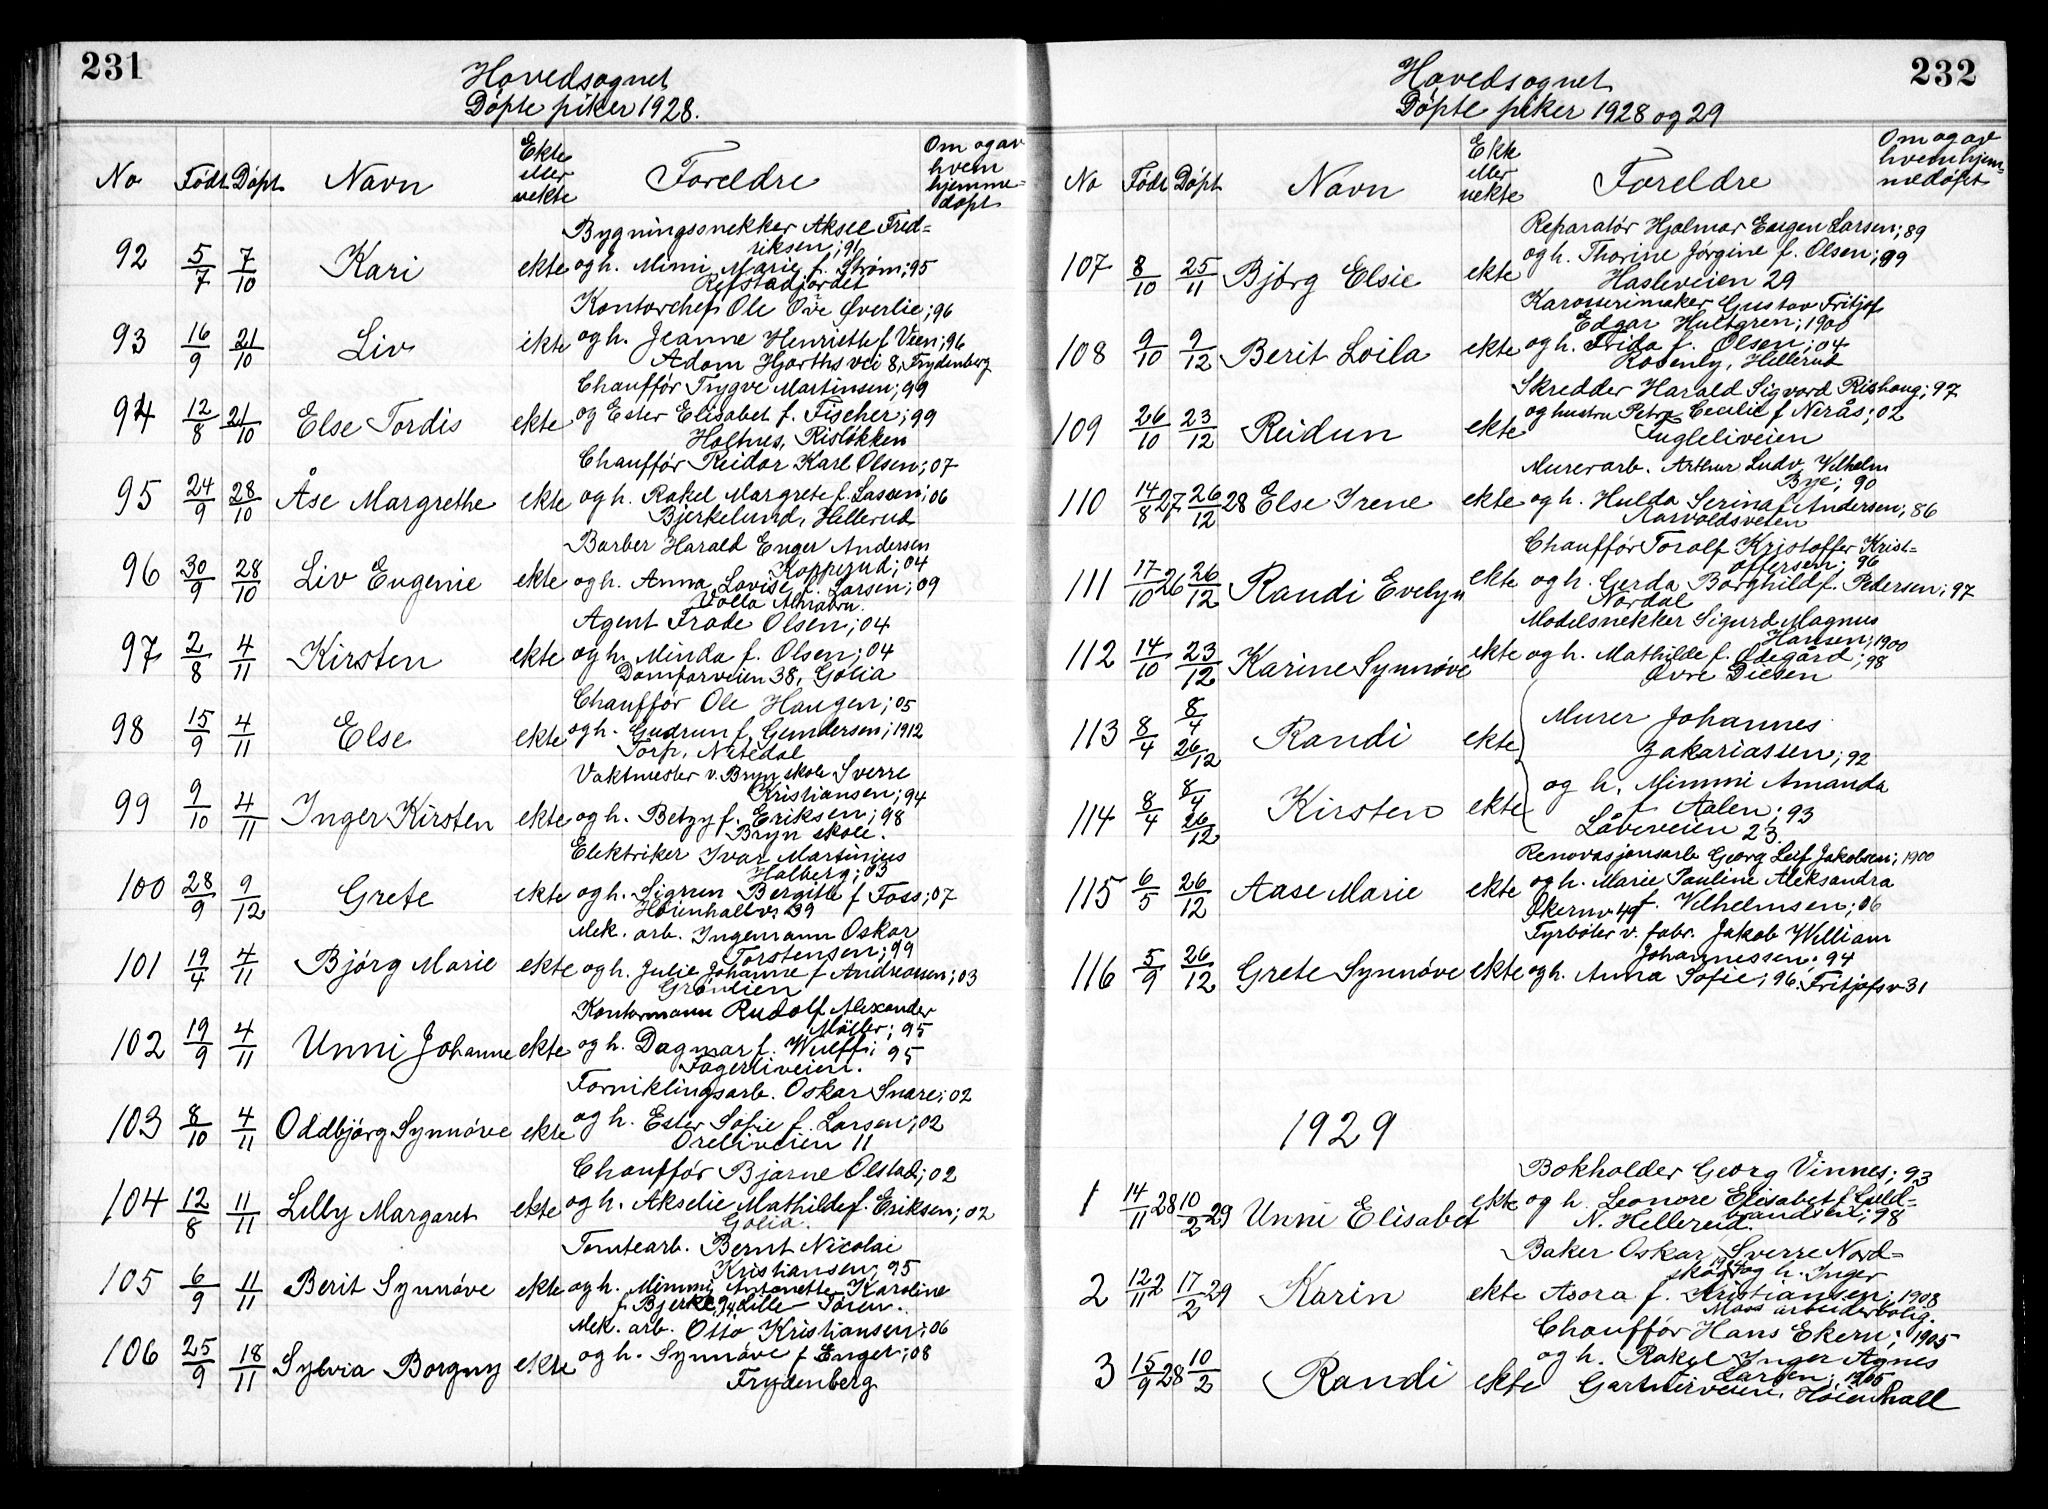 231
Hovedsognet
Döpte piker 1928.
No Født Döpt Navn Ekte eller uekte Foreldre Om og av hvem hjemme-döpt
Bygningssnekker Aksel Fred-
riksen; 96
92 5/7 7/10 Kari ekte og h. Mimi Marie f. Strøm; 95
Refstadjordet
Kontorchef Ole Ove Øverlie; 96
93 16/9 21/10 Liv ekte og h. Jeanne Henriette f. Veen; 96
Adam Hjorths vei 8, Frydenberg
Chauffør Trygve Martinsen; 99
94 12/8 21/10 Else Tordis ekte og Ester Elisabet f. Fischer; 99
Holtnes, Risløkken
Chauffør Reidar Karl Olsen; 07
95 24/9 28/10 Åse Margrethe ekte og h. Rakel Margrete f. Lassen; 06
Bjerkelund, Hellerud
Barber Harald Enger Andersen
Kopperud; 04
96 30/9 28/10 Liv Eugenie ekte og h. Anna Lovise f. Larsen; 09
Volla Alnabru
Agent Frode Olsen; 04
97 2/8 4/11 Kirsten ekte og h. Minda f. Olsen; 04
Domfarveien 38, Golia
Chauffør Ole Haugen; 05
98 15/9 4/11 Else ekte og h. Gudrun f. Gundersen; 1912
Torp, Nitedal
Vaktmester v. Bryn skole Sverre
Kristiansen; 94
99 9/10 4/11 Inger Kirsten ekte og h. Betzy f. Eriksen; 98
Bryn skole.
Elektriker Ivar Martinius
Halberg; 03
100 28/9 9/12 Grete ekte og h. Sigrun Bergitte f. Foss; 07
Høienhallv. 39
Mek. arb. Ingemann Oskar
Torstensen; 99
101 19/4 4/11 Bjørg Marie ekte og h. Julie Johanne f. Andreassen; 03
Grønlien
Kontormann Rudolf Alexander
Möller; 95
102 19/9 4/11 Unni Johanne ekte og h. Dagmar f. Wulff; 95
Fagerliveien.
Forniklingsarb. Oskar Snare; 02
103 8/10 4/11 Oddbjørg Synnøve ekte og h. Ester Sofie f. Larsen; 02
Oreliveien 11
Chauffør Bjarne Olstad; 02
104 12/8 11/11 Lilly Margaret ekte og h. Akselie Mathilde f. Eriksen; 02
Golia.
Tomtearb. Bernt Nicolai
Kristiansen; 95
105 6/9 11/11 Berit Synnøve ekte og h. Mimmi Antonette Karoline
f. Bjerke, 94 Lille-Tøien.
Mek. arb. Otto Kristiansen; 06
106 25/9 18/11 Sylvia Borgny ekte og h. Synnøve f. Enger; 08
Frydenberg
232
Hovedsognet
Döpte piker 1928 og 29
No Født Döpt Navn Ekte eller uekte Foreldre Om og av hvem hjem-medöpt
Reparatør Hjalmar Eugen Larsen; 89
107 8/10 25/11 Bjørg Elsie ekte og h. Thorine Jørgine f. Olsen; 89
Hasleveien 29
Karosserimaker Gustav Fritjof
Edgar Hultgren; 1900
108 9/10 9/12 Berit Loila ekte og h. Frida f. Olsen; 04
Rosenly, Hellerud
Skredder Harald Sigvard Rishaug; 97
109 26/10 23/12 Reidun ekte og hustru Petra Cecilie f. Nerås; 02
Fugleliveien
Murerarb. Arthur Ludv. Vilhelm
Bye; 90
110 14/8 27 26/12 28 Else Irene ekte og h. Hulda Serina f. Andersen; 86
Aarvoldsveien
Chauffør Torolf Kristoffer Krist-
offersen; 96
111 17/10 26 26/12 Randi Evelyn ekte og h. Gerda Borghild f. Pedersen; 97
Nordal
Modelsnekker Sigurd Magnus
Hansen; 1900
112 14/10 23/12 Karine Synnøve ekte og h. Mathilde f. Ødegård; 98
Øvre Disen
113 8/4 8/4 26/12 Randi ekte Murer Johannes
Zakariassen; 92
114 8/4 8/4 26/12 Kirsten ekte og h. Mimmi Amanda
f. Aalen; 93
Låveveien 23
Renovasjonsarb. Georg Leif Jakobsen; 1900
115 6/5 26/12 Aase Marie ekte og h. Marie Pauline Aleksandra
Økernv. 49 f. Vilhelmsen; 06
Fyrbøter v. fabr. Jakob William
Johannessen; 94
116 5/9 26/12 Grete Synnøve ekte og h. Anna Sofie; 96. Fritjofsv 31
1929
Bokholder Georg Vinnes; 93
1 14/11 28 10/2 29 Unni Elisabet ekte og h. Leonore Elisabet f. Guld-
brandsen; 98
N. Hellerud.
Baker Oskar Sverre Nord-
skog og h. Inger
2 12/11 2 17/2 29 Karin ekte Asora f. Kristiansen; 1908
Moss arbeiderbolig.
Chauffør Hans Ekern; 1905
3 15/9 28 10/2 Randi ekte og h. Rakel Inger Agnes
Larsen; 1905
Gartnerveien, Høienhall